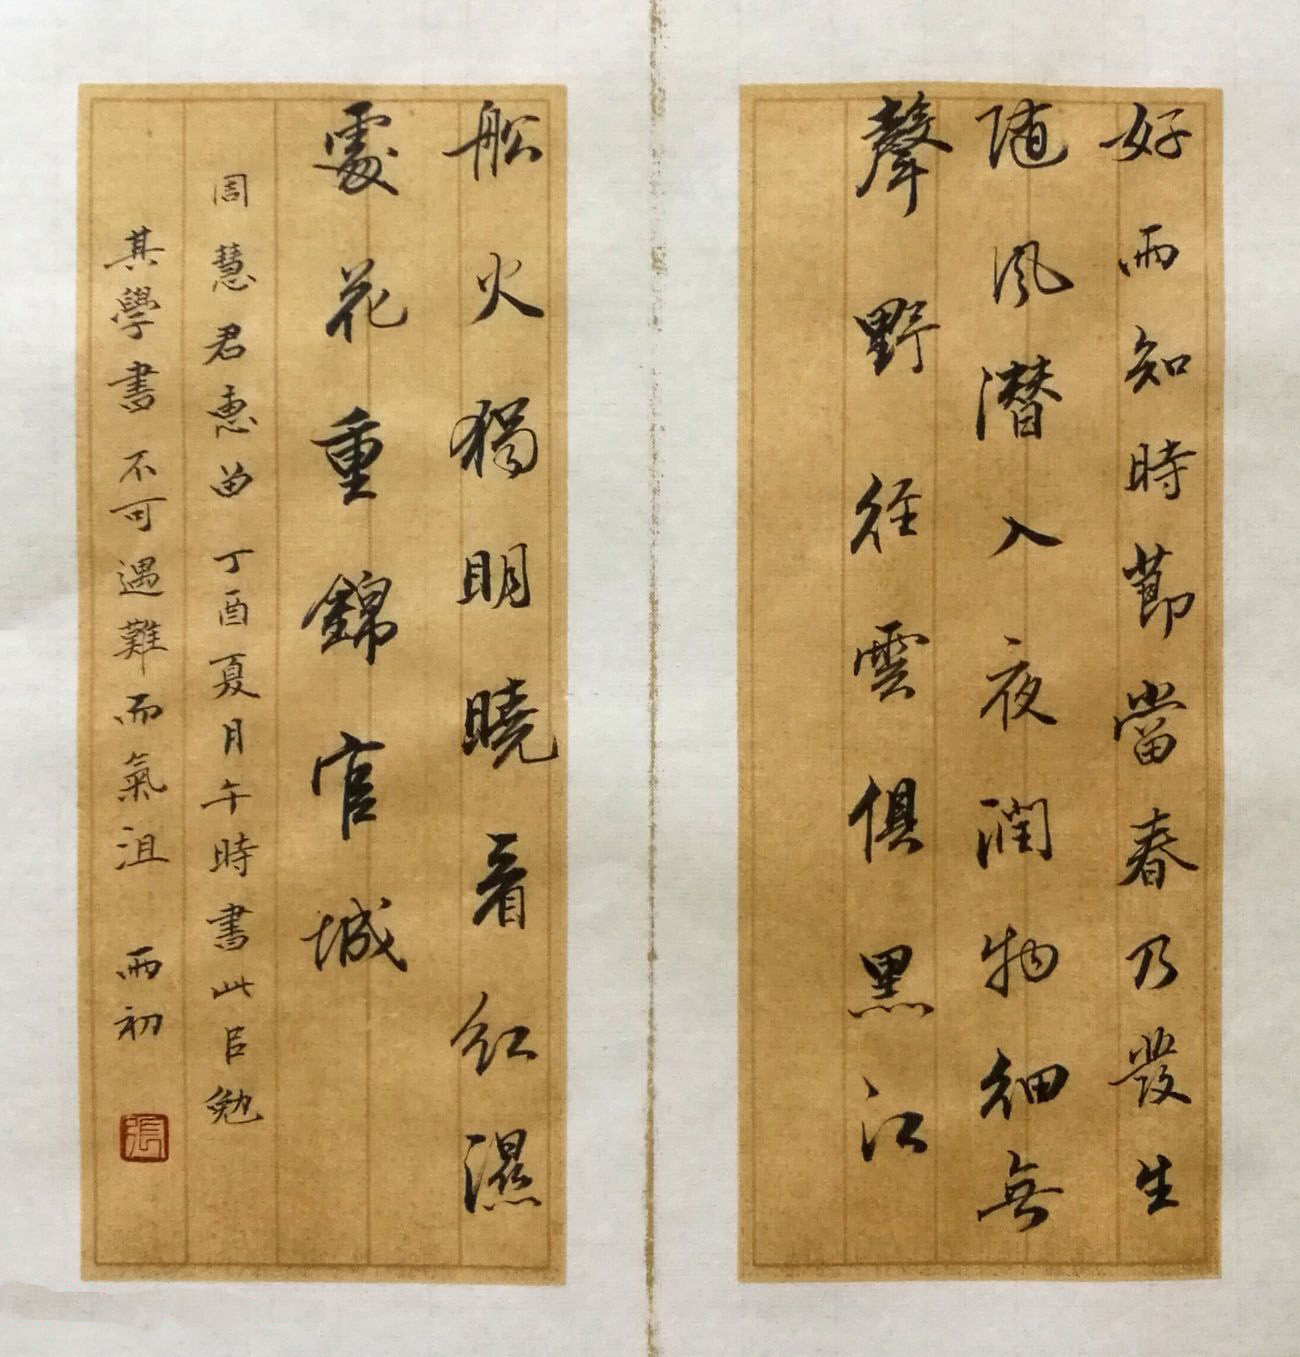 好雨知時節當春乃發生
随風潜入夜潤物細無
聲野径雲俱黑江
船火獨明曉看紅濕
處花重錦官城
周慧君惠留丁酉夏月午時書此㠯勉
其學書不可遇難而氣沮 雨初
張